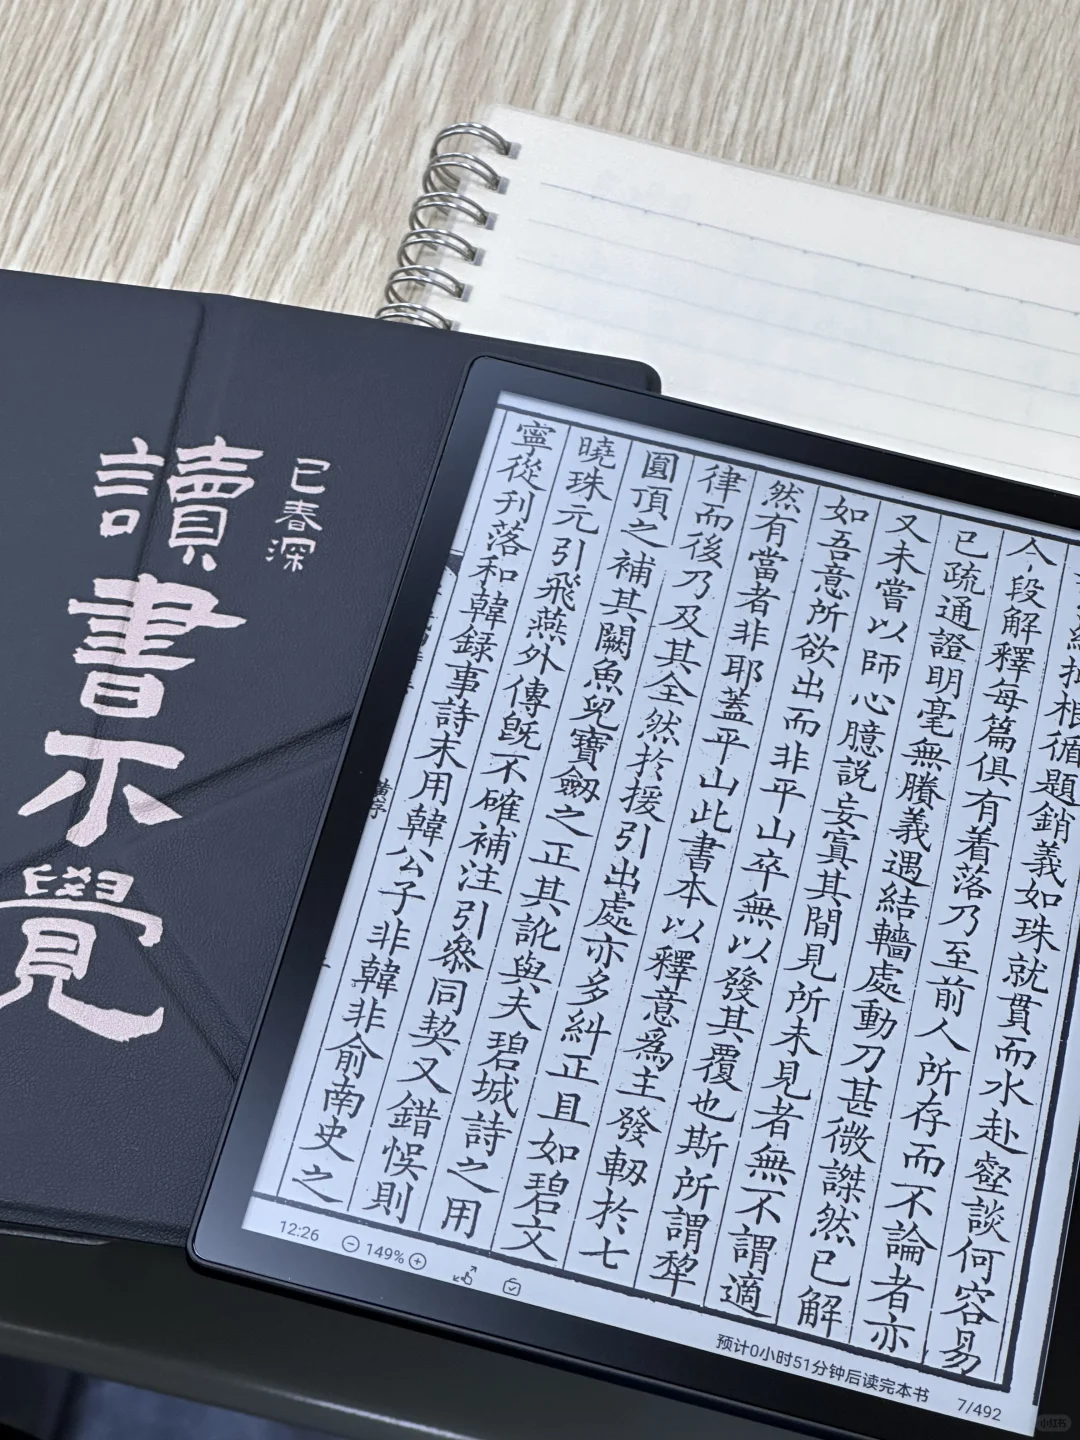 讀書不覺
已春深
相循題銷義如珠就貫而水赴壑談何容易
今一段解釋每篇俱有着落乃至前人所存而不論者亦
已疏通證明毫無賸義遇結轖處動刀甚微謋然已解
又未嘗以師心臆説妄寘其間見所未見者無不謂適
如吾意所欲出而非平山卒無以發其覆也斯所謂犂
然有當者非耶蓋平山此書本以釋意爲主發軔於七
律而後乃及其全然於援引出處亦多糾正且如碧文
圓頂之補其闕魚兒寶劒之正其訛與夫碧城詩之用
曉珠元引飛燕外傳旣不確補注引參同契又錯悞則
寧從刋落和韓録事詩末用韓公子非韓非俞南史之
12:26
149%
预计0小时51分钟后读完本书
7/492
小红书